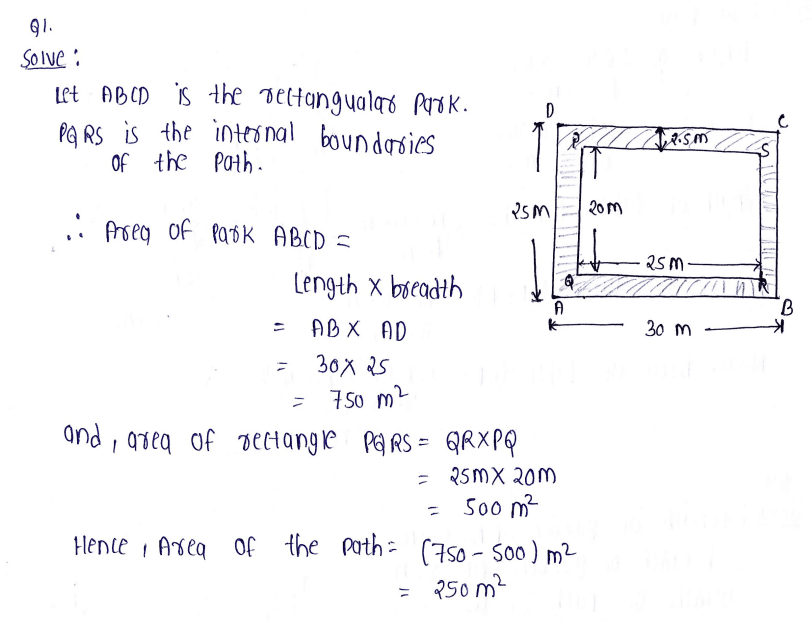 Q1.
Solve:
Let ABCD is the rectangualar Park.
PQRS is the internal boundaries
of the Path.
∴ Area of Park ABCD =
Length X breadth
= AB X AD
= 30 X 25
= 750 m²
and, area of rectangle PQRS = QRXPQ
= 25m X 20m
= 500 m²
Hence, Area of the path = (750 - 500) m²
= 250 m²
D
C
P
2.5m
S
25m
20m
25m
Q
R
A
B
30 m